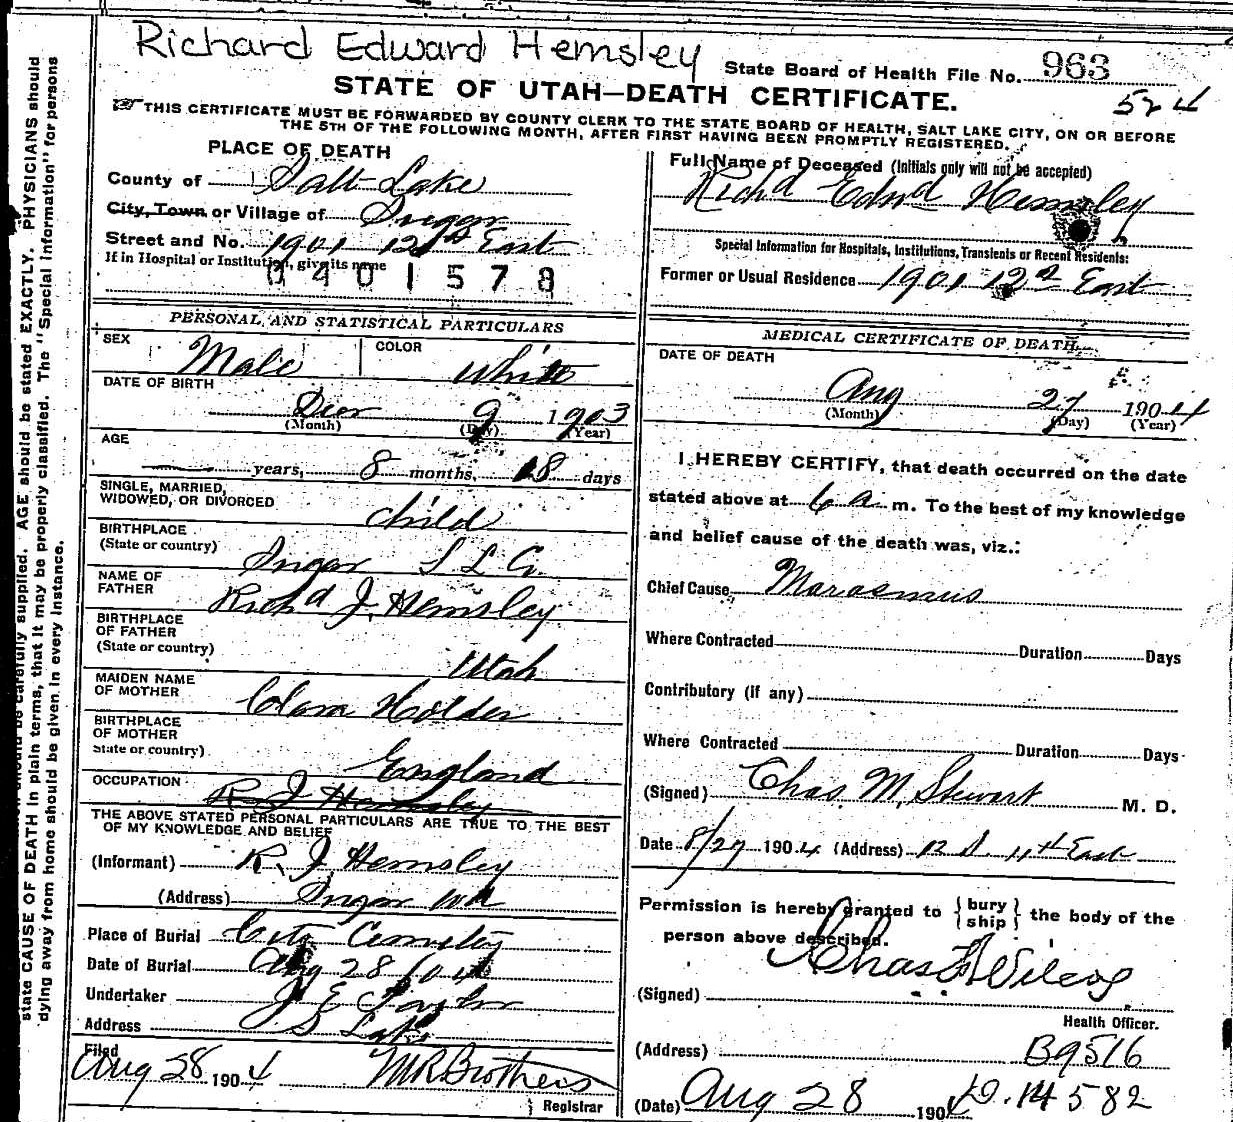 Richard Edward Hemsley
State Board of Health File No. 963
524
STATE OF UTAH—DEATH CERTIFICATE.
THIS CERTIFICATE MUST BE FORWARDED BY COUNTY CLERK TO THE STATE BOARD OF HEALTH, SALT LAKE CITY, ON OR BEFORE
THE 5TH OF THE FOLLOWING MONTH, AFTER FIRST HAVING BEEN PROMPTLY REGISTERED.
PLACE OF DEATH
County of Salt Lake
City, Town or Village of Sugar
Street and No. 1901 12th East
If in Hospital or Institution, give its name
0401578
Full Name of Deceased (Initials only will not be accepted)
Richd Edwd Hemsley
Special Information for Hospitals, Institutions, Transients or Recent Residents:
Former or Usual Residence 1901 12th East
PERSONAL AND STATISTICAL PARTICULARS
SEX Male COLOR White
DATE OF BIRTH
Dec 9 1903
(Month) (Day) (Year)
AGE
— years, 8 months, 18 days
SINGLE, MARRIED,
WIDOWED, OR DIVORCED child
BIRTHPLACE
(State or country) Sugar S L Co.
NAME OF
FATHER Richd J. Hemsley
BIRTHPLACE
OF FATHER
(State or country) Utah
MAIDEN NAME
OF MOTHER Clara Holder
BIRTHPLACE
OF MOTHER
State or country) England
OCCUPATION R J Hemsley
THE ABOVE STATED PERSONAL PARTICULARS ARE TRUE TO THE BEST
OF MY KNOWLEDGE AND BELIEF
(Informant) R. J. Hemsley
(Address) Sugar Wd
Place of Burial City Cemetery
Date of Burial Aug 28 1904
Undertaker J E Taylor
Address S Lake
Filed
Aug 28 1904 M R Brothers
Registrar
MEDICAL CERTIFICATE OF DEATH
DATE OF DEATH
Aug 27 1904
(Month) (Day) (Year)
I HEREBY CERTIFY, that death occurred on the date
stated above at 6 a m. To the best of my knowledge
and belief cause of the death was, viz.:
Chief Cause Marasmus
Where Contracted Duration Days
Contributory (if any)
Where Contracted Duration Days
(Signed) Chas. M. Stewart M. D.
Date 8/27 1904 (Address) 12 S. 11th East
Permission is hereby granted to { bury ship } the body of the
person above described.
(Signed) Chas Wilcox
Health Officer.
(Address) B9516
(Date) Aug 28 1904 D. 14582
state CAUSE OF DEATH in plain terms, that it may be properly classified. The "Special Information" for persons
dying away from home should be given in every instance.
should be carefully supplied. AGE should be stated EXACTLY. PHYSICIANS should